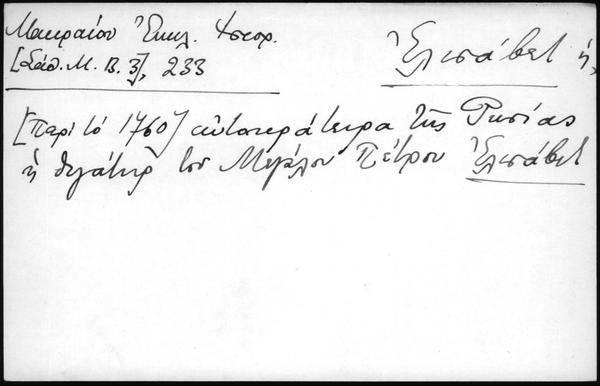 Μακραίου Ἐκκλ. Ἱστορ.
[Σάθ. Μ. Β. 3], 233
Ἐλισάβετ ἡ,
[περὶ τὸ 1760] αὐτοκράτειρα τῆς Ρωσίας
ἡ θυγάτηρ τοῦ Μεγάλου Πέτρου Ἐλισάβετ